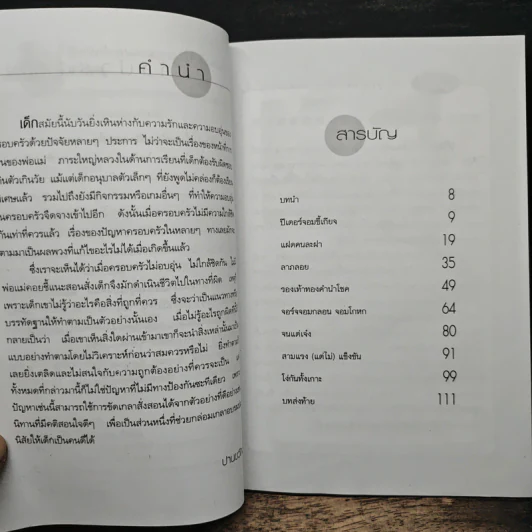 คำนำ
เด็กสมัยนี้นับวันยิ่งเหินห่างกับความรักและความอบอุ่นของ
รอบครัวด้วยปัจจัยหลายๆ ประการ ไม่ว่าจะเป็นเรื่องของหน้าที่การ
ของพ่อแม่ ภาระใหญ่หลวงในด้านการเรียนที่เด็กต้องรับผิดชอบ
ตัวเกินวัย แม้แต่เด็กอนุบาลตัวเล็กๆ ที่ยังพูดไม่คล่องก็ต้อง
รวมไปถึงยังมีกิจกรรมหรือเกมอื่นๆ ที่ทำให้ความอบอุ่น
ครอบครัวจืดจางเข้าไปอีก ดังนั้นเมื่อครอบครัวไม่มีความใกล้ชิด
กันเท่าที่ควรแล้ว เรื่องของปัญหาครอบครัวในหลายๆ ทางเลยมัก
ตามมาเป็นผลพวงที่แก้ไขอะไรไม่ได้เมื่อเกิดขึ้นแล้ว
ซึ่งเราจะเห็นได้ว่าเมื่อครอบครัวไม่อบอุ่น ไม่ใกล้ชิดกัน ไม่มี
พ่อแม่คอยชี้แนะสอนสั่งเด็กจึงมักดำเนินชีวิตไปในทางที่ผิด เหตุ
เพราะเด็กเขาไม่รู้ว่าอะไรคือสิ่งที่ถูกที่ควร ซึ่งจะว่าเป็นแนวทาง
บรรทัดฐานให้ทำตามเป็นตัวอย่างนั้นเอง เมื่อไม่รู้อะไรถูกผิด
กลายเป็นว่า เมื่อเขาเห็นสิ่งใดผ่านเข้ามาเขาก็จะนำสิ่งเหล่านั้นมาเป็น
แบบอย่างทำตามโดยไม่วิเคราะห์ก่อนว่าสมควรหรือไม่ ยิ่งทำตาม
เลยยิ่งเตลิดและไม่สนใจกับความถูกต้องอย่างที่ควรจะเป็น แต่
ทั้งหมดที่กล่าวมานี้ก็ไม่ใช่ปัญหาที่ไม่มีทางป้องกันซะทีเดียว เพราะ
ปัญหาเช่นนี้สามารถใช้การขัดเกลาสั่งสอนได้จากตัวอย่างที่ดีอย่าง
นิทานที่มีคติสอนใจดีๆ เพื่อเป็นส่วนหนึ่งที่ช่วยกล่อมเกลาอบรม
นิสัยให้เด็กเป็นคนดีได้
สารบัญ
บทนำ 8
ปีเตอร์จอมขี้เกียจ 9
แฝดคนละฝา 19
ลาภลอย 35
รองเท้าทองคำนำโชค 49
จอร์จจอมกลอน จอมโกหก 64
จนแต่เจ๋ง 80
สามแรง (แต่ไม่) แข็งขัน 91
โง่กันทั้งเกาะ 99
บทส่งท้าย 111